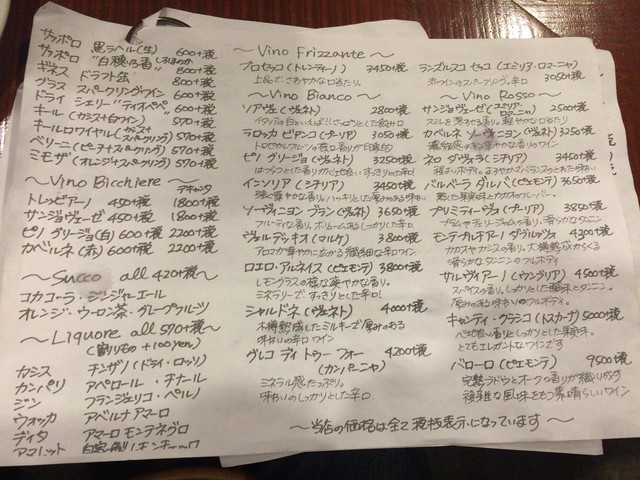 サッポロ 黒ラベル(生) 600+税
サッポロ "白穂乃香" 800+税
ギネス ドラフト缶 800+税
グラス スパークリングワイン 600+税
ドライ シェリー"ティオペペ" 600+税
キール(カシス+白ワイン) 570+税
キールロワイヤル(カシス+スパークリング) 570+税
ベリーニ(ピーチ+スパークリング) 570+税
ミモザ(オレンジ+スパークリング) 570+税
～Vino Bicchiere～ デキャンタ
トレッビアーノ 450+税 1800+税
サンジョヴェーゼ 450+税 1800+税
ピノ グリージョ(白) 600+税 2200+税
カベルネ(赤) 600+税 2200+税
～Succo all 420+税～
コカコーラ・ジンジャエール
オレンジ・ウーロン茶・グレープフルーツ
～Liquore all 570+税～
(割りもの +100yen)
カシス チンザノ(ドライ・ロッソ)
カンパリ アペロール・チナール
ジン フランジェリコ・ペルノ
ウォッカ アベルナ アマーロ
ディタ アマーロ モンテネグロ
アマレット
～Vino Frizzante～
プロセッコ(トレンティーノ) 3450+税
上品で、さわやかな口当たり。
ランブルスコ セッコ(エミリア・ロマーニャ) 3050+税
赤ワインのスパークリング。辛口
～Vino Bianco～
ソアヴェ(ヴェネト) 2800+税
イタリアの白といえば!!
ラロッカ ビアンコ(プーリア) 3050+税
トロピカルフルーツの香りが印象的
ピノ グリージョ(ヴェネト) 3250+税
はつらつとした香りが心地良い。すっきりとした辛口
インソリア(シチリア) 3450+税
強く華やかな香り。ハッキリとした厚みある味わい
ソーヴィニヨン ブラン(ヴェネト) 3650+税
フルーティな香り。ボリュームあるしっかりとした辛口
ヴェルディッキオ(マルケ) 3800+税
アロマが華やかに広がる繊細な辛口ワイン
ロエロ・アルネイス(ピエモンテ) 3800+税
レモングラスの様な爽やかな香り。
ミネラリーで、すっきりとした辛口!
シャルドネ(ヴェネト) 4000+税
木樽熟成したミルキーで厚みのある
味わいの辛口ワイン
グレコ ディ トゥーフォー(カンパーニャ) 4200+税
ミネラル感たっぷり。
味わいのしっかりとした辛口
～Vino Rosso～
サンジョヴェーゼ(エミリア・ロマーニャ) 2500+税
スミレを思わせる香り。軽やかな口当たり
カベルネ ソーヴィニヨン(ヴェネト) 3250+税
ネロ ダヴォラ(シチリア) 3450+税
バルベーラ ダルバ(ピエモンテ) 3650+税
プリミティーヴォ(プーリア) 3850+税
モンテプルチアーノ ダブルッツォ 4300+税
カカオやカシスの香り。木樽熟成からくる
滑らかなタンニンのフルボディ
サルヴィアーノ(ウンブリア) 4500+税
スパイスの香り。しっかりとした酸味とタンニン。
厚みのある味わいのフルボディ。
キャンティ・クラシコ(トスカーナ) 5000+税
心地良い香りとしっかりとした果実味。
とてもエレガントなワインです
バローロ(ピエモンテ) 9500+税
複雑な風味をもつ素晴らしいワイン
～当店の価格は全て税抜表示になっています～